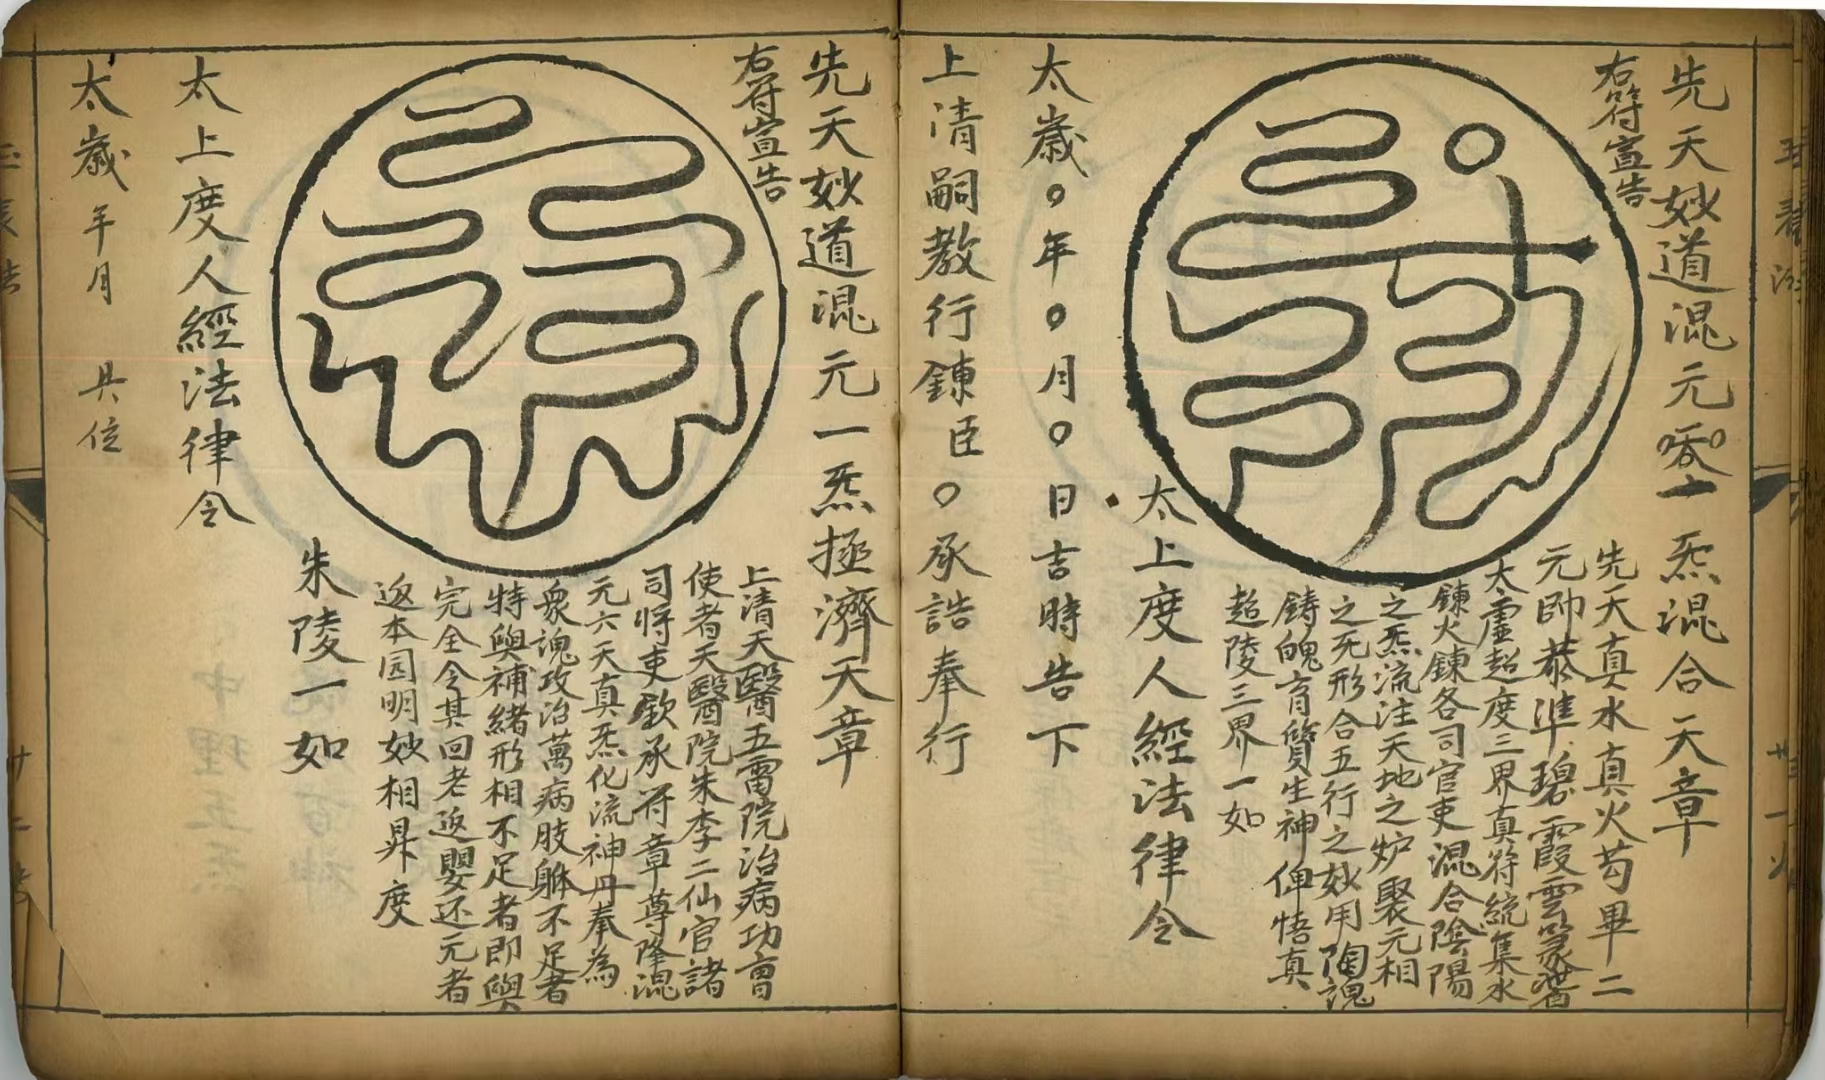 先天妙道混元一炁混合天章
右符宣告
先天真水真火芶畢二
元帥恭準碧霞雲篆潛
太虛超度三界真符統集水
鍊火鍊各司官吏混合陰陽
之炁流注天地之炉聚元相
之死形合五行之妙用陶魂
鑄魄育質生神俾悟真
超陵三界一如
太上度人經法律令
太歲〇年〇月〇日吉時告下
上清嗣教行鍊臣〇承誥奉行
先天妙道混元一炁拯濟天章
右符宣告
上清天醫五雷院治病功曹
使者天醫院朱李二仙官諸
司將吏欽承符章尊降混
元六天真炁化流神丹奉為
衆魂攻治萬病肢躰不足者
特與補緒形相不足者即與
完全令其回老返嬰还元者
返本囩明妙相昇度
朱陵一如
太上度人經法律令
太歲年月 具位